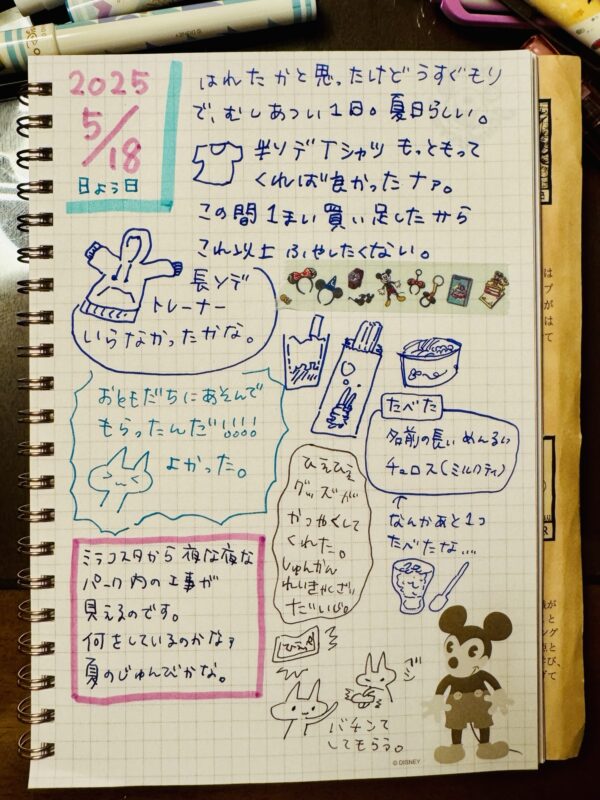 2025
5/18
日よう日
はれたかと思ったけどうすぐもり
で、むしあつい1日。夏日らしい。
半ソデTシャツ もっともって
くれば良かったナァ。
この間1まい買い足したから
これ以上ふやしたくない。
長ソデ
トレーナー
いらなかったかな。
おともだちにあそんで
もらったんだ!!!!
よかった。
たべた
名前の長いめんるい
チュロス(ミルクティ)
↑
なんかあと1つ
たべたな…
ひえひえ
グッズが
かつやくして
くれた。
しゅんかん
れいきゃくざい
だいじ。
ミラコスタから夜な夜な
パーク内の工事が
見えるのです。
何をしているのかな?
夏のじゅんびかな。
バシ
バチンて
してもらう。
© DISNEY